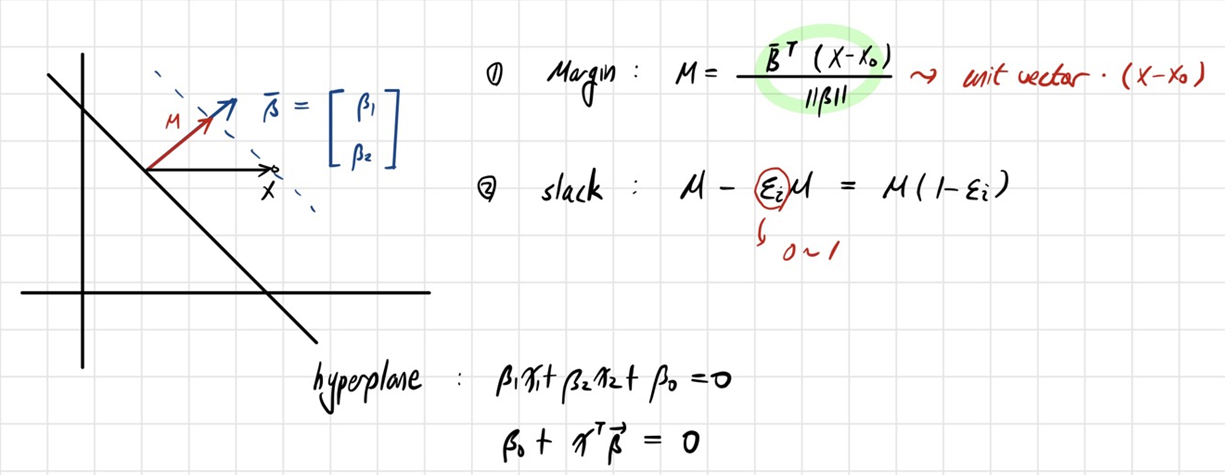 ① Margin : M = β̄ᵀ (X-X₀) / ||β|| ⤳ unit vector · (X-X₀)
M β̄ = [ β₁ β₂ ]
X
② slack : M - εᵢM = M(1-εᵢ)
0~1
hyperplane : β₁x₁+β₂x₂+β₀ =0
β₀ + xᵀβ⃗ = 0